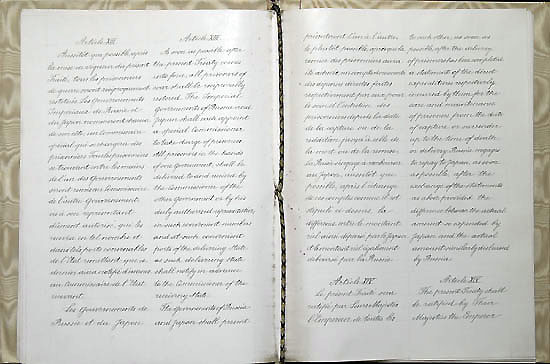 Article XIII
Aussitôt que possible, après
la mise en vigueur du présent
Traité, tous les prisonniers
de guerre seront réciproquement
restitués. Les Gouvernements
Impériaux de Russie et
du Japon nommeront chacun
de son côté un Commissaire
spécial qui se chargera des
prisonniers. Tous les prisonniers
se trouvant entre les mains
de l'un des Gouvernements
seront remis au Commissaire
de l'autre Gouvernement
ou à son représentant
dûment autorisé, qui les
recevra en tel nombre et
dans tels ports convenables
de l'Etat remettant que ce
dernier aura notifiés d'avance
au Commissaire de l'Etat
recevant.
Les Gouvernements de
Russie et du Japon
Article XIII
As soon as possible after
the present Treaty comes
into force, all prisoners of
war shall be reciprocally
restored. The Imperial
Governments of Russia and
Japan shall each appoint
a special Commissioner
to take charge of prisoners.
All prisoners in the hands
of one Government shall be
delivered to and received by
the Commissioner of the
other Government or by his
duly authorized representative,
in such convenient numbers
and at such convenient
ports of the delivering State
as such delivering State
shall notify in advance
to the Commissioner of the
receiving State.
The Governments of Russia
and Japan shall present
présenteront l'un à l'autre,
le plus tôt possible, après que la
remise des prisonniers aura
été achevée, un compte documenté
des dépenses directes faites
respectivement par eux pour
le soin et l'entretien des
prisonniers depuis la date
de la capture ou de la
reddition jusqu'à celle de
la mort ou de la remise.
La Russie s'engage à rembourser
au Japon, aussitôt que
possible, après l'échange
de ces comptes comme il est
stipulé ci-dessus, la
différence entre le montant
réel ainsi dépensé par le Japon
et le montant réel également
déboursé par la Russie.
Article XIV
Le présent Traité sera
ratifié par Leurs Majestés
l'Empereur de toutes les
to each other, as soon as
possible after the delivery
of prisoners has been completed,
a statement of the direct
expenditures respectively
incurred by them for the
care and maintenance
of prisoners from the date
of capture or surrender
up to the time of death
or delivery. Russia engages
to repay to Japan, as soon
as possible after the
exchange of the statements
as above provided, the
difference between the actual
amount so expended by
Japan and the actual
amount similarly disbursed
by Russia.
Article XIV
The present Treaty shall
be ratified by Their
Majesties the Emperor